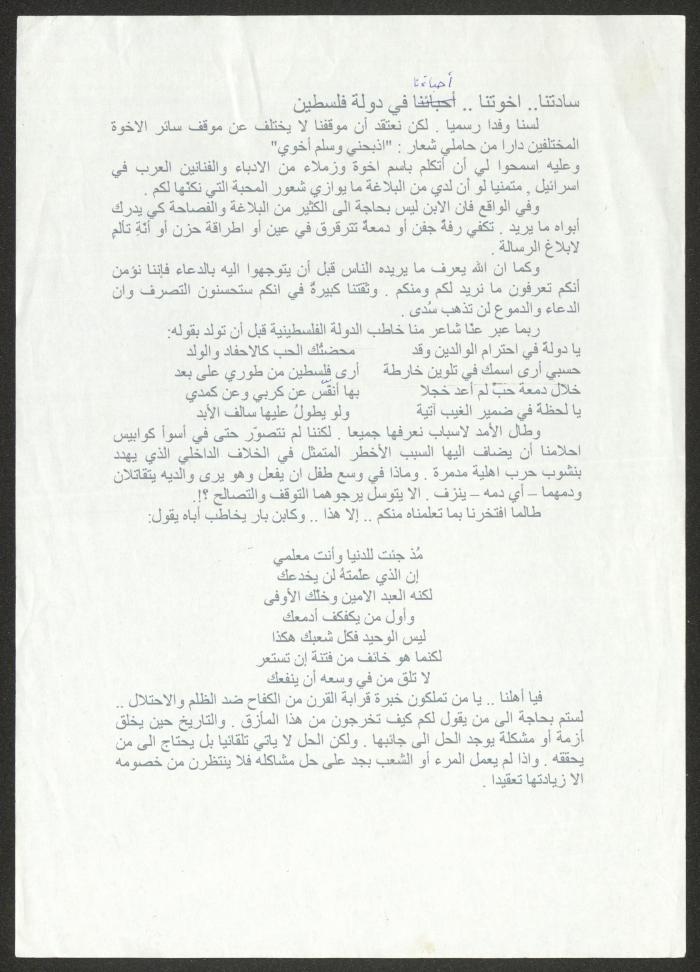 أحباءَنا
سادتنا.. اخوتنا .. أحبائنا في دولة فلسطين
لسنا وفدا رسميا . لكن نعتقد أن موقفنا لا يختلف عن موقف سائر الاخوة
المختلفين دارا من حاملي شعار : "اذبحني وسلم أخوي"
وعليه اسمحوا لي أن أتكلم باسم اخوة وزملاء من الادباء والفنانين العرب في
اسرائيل , متمنيا لو أن لدي من البلاغة ما يوازي شعور المحبة التي نكنّها لكم .
وفي الواقع فان الابن ليس بحاجة الى الكثير من البلاغة والفصاحة كي يدرك
أبواه ما يريد . تكفي رفة جفن أو دمعة تترقرق في عين أو اطراقة حزن أو أنّةِ تألمٍ
لابلاغ الرسالة .
وكما ان الله يعرف ما يريده الناس قبل أن يتوجهوا اليه بالدعاء فإننا نؤمن
أنكم تعرفون ما نريد لكم ومنكم . وثقتنا كبيرةٌ في انكم ستحسنون التصرف وان
الدعاء والدموع لن تذهب سُدى .
ربما عبر عنّا شاعر منا خاطب الدولة الفلسطينية قبل أن تولد بقوله:
يا دولة في احترام الوالدين وقد محضتُك الحب كالاحفاد والولد
حسبي أرى اسمك في تلوين خارطة أرى فلسطين من طوري على بعد
خلال دمعة حبّ لم أعد خجلا بها أنفّس عن كربي وعن كمدي
يا لحظة في ضمير الغيب آتية ولو يطولُ عليها سالف الأبد
وطال الأمد لاسباب نعرفها جميعا . لكننا لم نتصوّر حتى في أسوأ كوابيس
احلامنا أن يضاف اليها السبب الأخطر المتمثل في الخلاف الداخلي الذي يهدد
بنشوب حرب اهلية مدمرة . وماذا في وسع طفل ان يفعل وهو يرى والديه يتقاتلان
ودمهما – أي دمه – ينزف . الا يتوسل يرجوهما التوقف والتصالح ؟!.
طالما افتخرنا بما تعلمناه منكم .. إلا هذا .. وكابن بار يخاطب أباه يقول:
مُذ جئت للدنيا وأنت معلمي
إن الذي علّمتهُ لن يخدعك
لكنه العبد الامين وخلّك الأوفى
وأول من يكفكف أدمعك
ليس الوحيد فكل شعبك هكذا
لكنما هو خائف من فتنة إن تستعر
لا تلق من في وسعه أن ينفعك
فيا أهلنا .. يا من تملكون خبرة قرابة القرن من الكفاح ضد الظلم والاحتلال ..
لستم بحاجة الى من يقول لكم كيف تخرجون من هذا المأزق . والتاريخ حين يخلق
أزمة أو مشكلة يوجد الحل الى جانبها . ولكن الحل لا ياتي تلقائيا بل يحتاج الى من
يحققه . واذا لم يعمل المرء أو الشعب بجد على حل مشاكله فلا ينتظرن من خصومه
الا زيادتها تعقيدا .